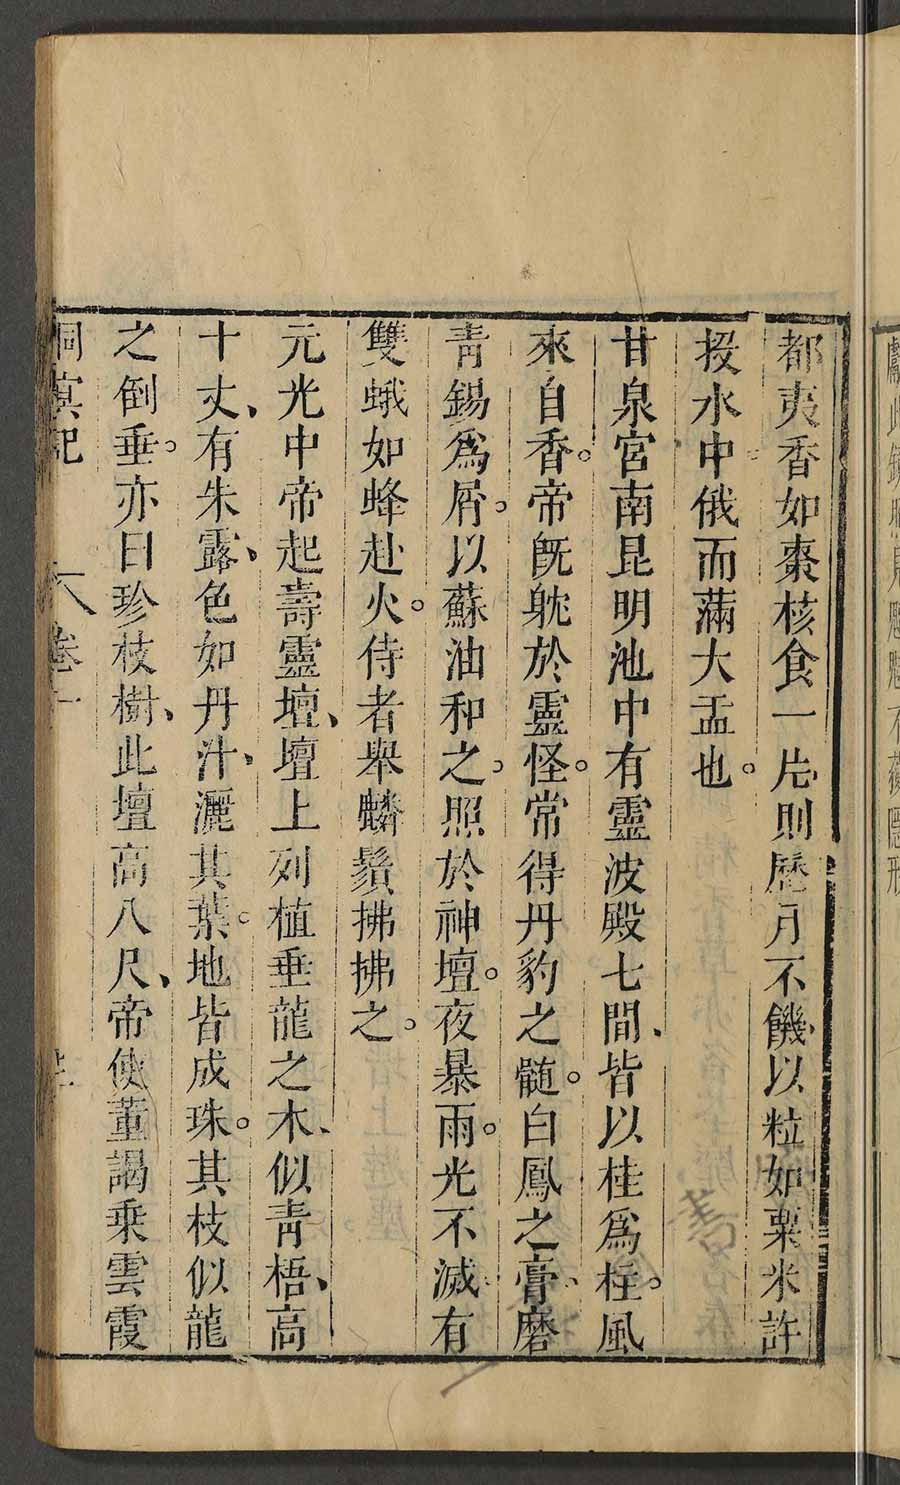 都夷香如棗核食一片則歷月不饑以粒如粟米許
投水中俄而滿大盂也。
甘泉宮南昆明池中有靈波殿七間、皆以桂爲柱。風
來自香。帝旣躭於靈怪。常得丹豹之髓。白鳳之膏、磨
青錫爲屑。以蘇油和之、照於神壇。夜暴雨。光不滅有
雙蛾如蜂赴火。侍者舉麟鬚拂拂之。
元光中帝起壽靈壇、壇上列植垂龍之木、似青梧、高
十丈、有朱露、色如丹汁、灑其葉。地皆成珠。其枝似龍
之倒垂。亦曰珍枝樹、此壇高八尺、帝使董謁乗雲霞
洞冥記 卷一